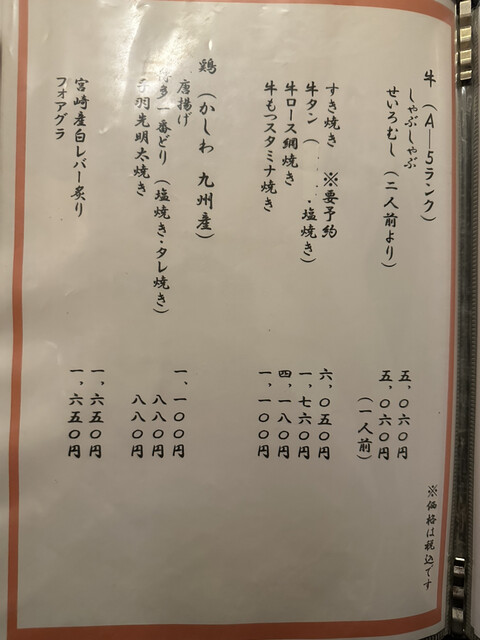 牛(A-5ランク)
しゃぶしゃぶ 五,〇六〇円
せいろむし(二人前より) 五,〇六〇円
(一人前)
すき焼き ※要予約 六,〇五〇円
牛タン( ・塩焼き) 一,七六〇円
牛ロース網焼き 四,一八〇円
牛もつスタミナ焼き 一,一〇〇円
鶏(かしわ 九州産)
唐揚げ 一,一〇〇円
博多一番どり(塩焼き・タレ焼き) 八八〇円
手羽先明太焼き 八八〇円
宮崎産白レバー炙り 一,六五〇円
フォアグラ 一,六五〇円
※価格は税込です